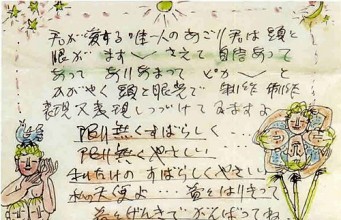 君が愛する唯一人のあごり君は頭と
眼がますますさえて自信あって
あってありあまってピカーッと
かがやく頭と眼光で 制作 制作
表現又表現しつづけてゐますよ
限り無くすばらしく・・・
限り無くやさしい・・・
私だけのすばらしくやさしい
私の天使よ・・・益々はりきって
益々げんきでがんばってね